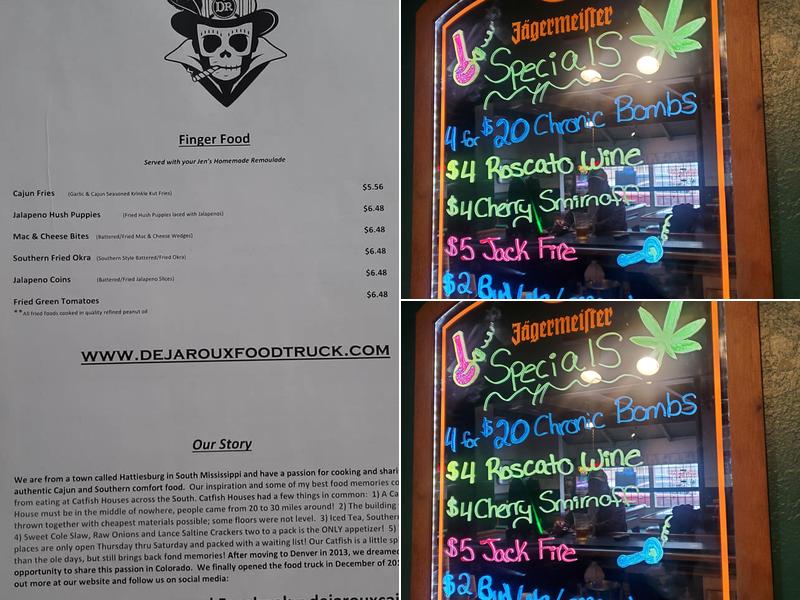 DR
Finger Food
Served with your Jen's Homemade Remoulade
Cajun Fries (Garlic & Cajun Seasoned Krinkle Kut Fries) $5.56
Jalapeno Hush Puppies (Fried Hush Puppies laced with Jalapenos) $6.48
Mac & Cheese Bites (Battered/Fried Mac & Cheese Wedges) $6.48
Southern Fried Okra (Southern Style Battered/Fried Okra) $6.48
Jalapeno Coins (Battered/Fried Jalapeno Slices) $6.48
Fried Green Tomatoes $6.48
**All fried foods cooked in quality refined peanut oil
WWW.DEJAROUXFOODTRUCK.COM
Our Story
We are from a town called Hattiesburg in South Mississippi and have a passion for cooking and shari
authentic Cajun and Southern comfort food. Our inspiration and some of my best food memories co
from eating at Catfish Houses across the South. Catfish Houses had a few things in common: 1) A Ca
House must be in the middle of nowhere, people came from 20 to 30 miles around! 2) The building
thrown together with cheapest materials possible; some floors were not level. 3) Iced Tea, Southern
4) Sweet Cole Slaw, Raw Onions and Lance Saltine Crackers two to a pack is the ONLY appetizer! 5)
places are only open Thursday thru Saturday and packed with a waiting list! Our Catfish is a little sp
than the ole days, but still brings back fond memories! After moving to Denver in 2013, we dreamed
opportunity to share this passion in Colorado. We finally opened the food truck in December of 201
out more at our website and follow us on social media:
Jägermeister
Specials
4 for $20 Chronic Bombs
$4 Roscato Wine
$4 Cherry Smirnoff
$5 Jack Fire
$2 Bud
Jägermeister
Specials
4 for $20 Chronic Bombs
$4 Roscato Wine
$4 Cherry Smirnoff
$5 Jack Fire
$2 Bud